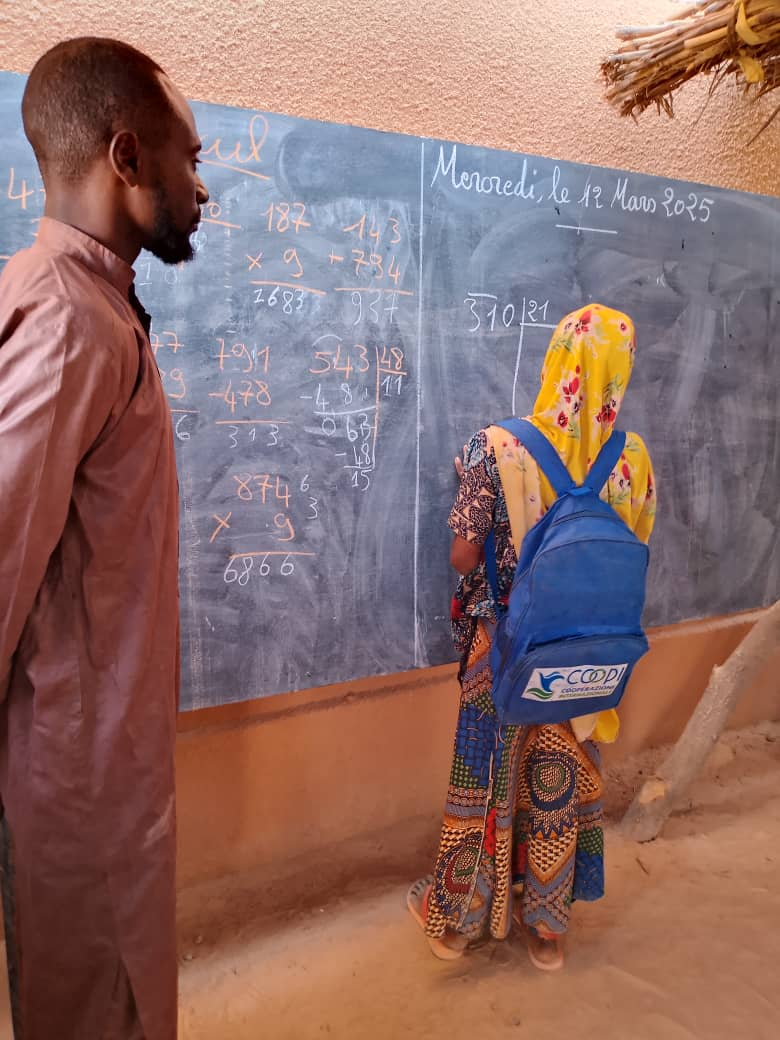 Mercredi, le 12 Mars 2025
187
× 9
1683
143
+ 794
937
791
- 478
313
543 | 48
- 48 | 11
063
- 48
15
874
× 9
6
3
6866
310 | 21
COOPI
COOPERAZIONE
INTERNAZIONALE